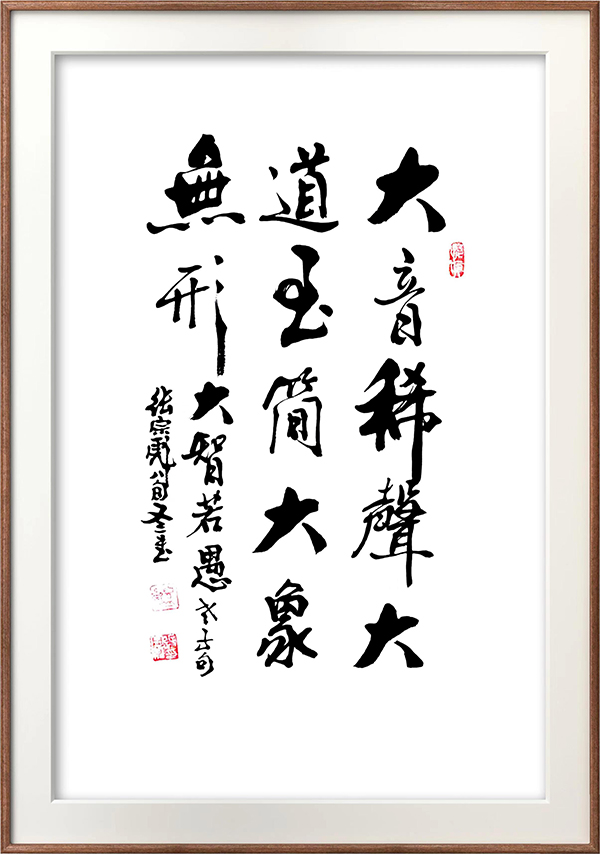 大音稀聲大
道至簡大象
無形
大智若愚老子句
张宗